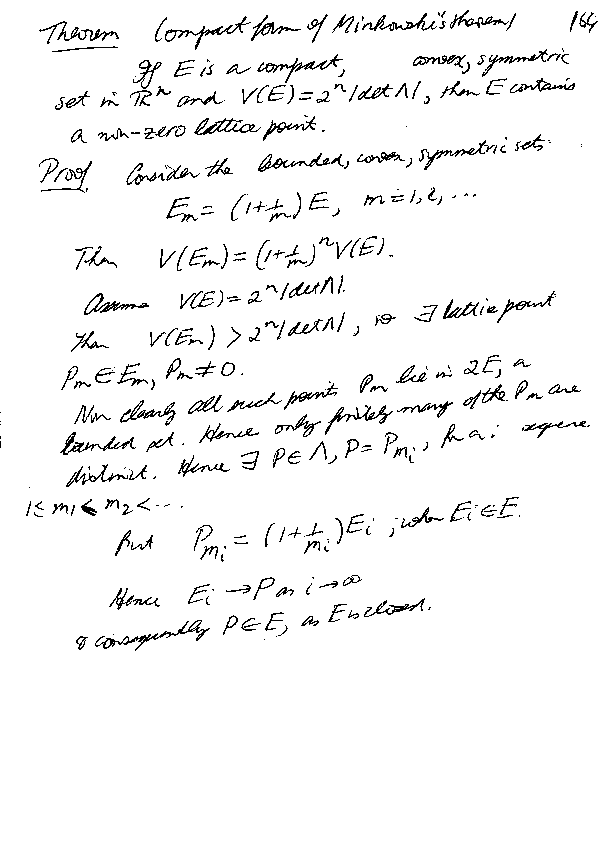 Theorem (compact form of Minkowski's theorem) 164
If E is a compact, convex, symmetric
set in ℝⁿ and V(E) = 2ⁿ|det Λ|, then E contains
a non-zero lattice point.
Proof Consider the bounded, convex, symmetric sets
Eₘ = (1 + 1/m) E, m = 1, 2, ...
Then V(Eₘ) = (1 + 1/m)ⁿ V(E).
Assume V(E) = 2ⁿ|det Λ|.
Then V(Eₘ) > 2ⁿ|det Λ|, so ∃ lattice point
Pₘ ∈ Eₘ, Pₘ ≠ 0.
Now clearly all such points Pₘ lie in 2E, a
bounded set. Hence only finitely many of the Pₘ are
distinct. Hence ∃ P ∈ Λ, P = P_{m_i}, for a
1 ≤ m₁ < m₂ < ...
But P_{m_i} = (1 + 1/m_i) E_i, where E_i ∈ E.
Hence E_i → P as i → ∞
& consequently P ∈ E, as E is closed.